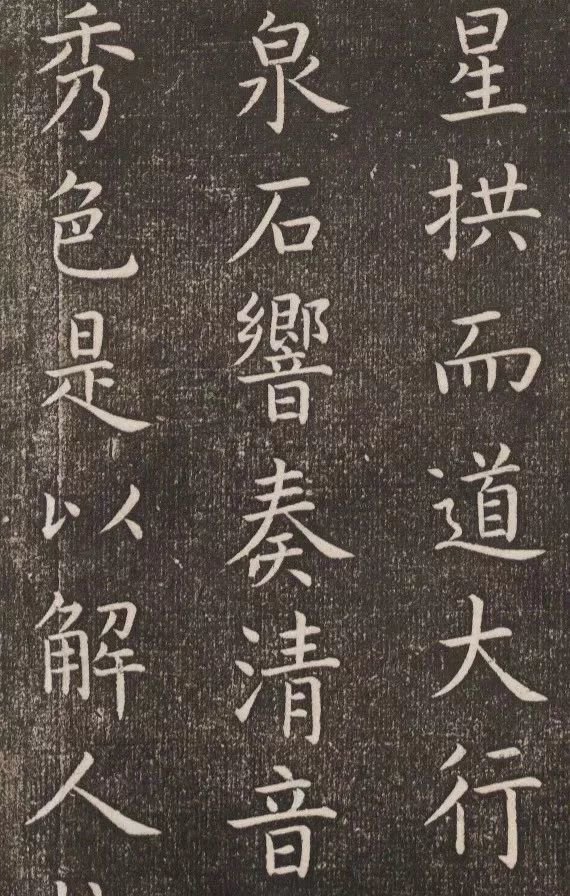 星拱而道大行
泉石響奏清音
秀色是以解人